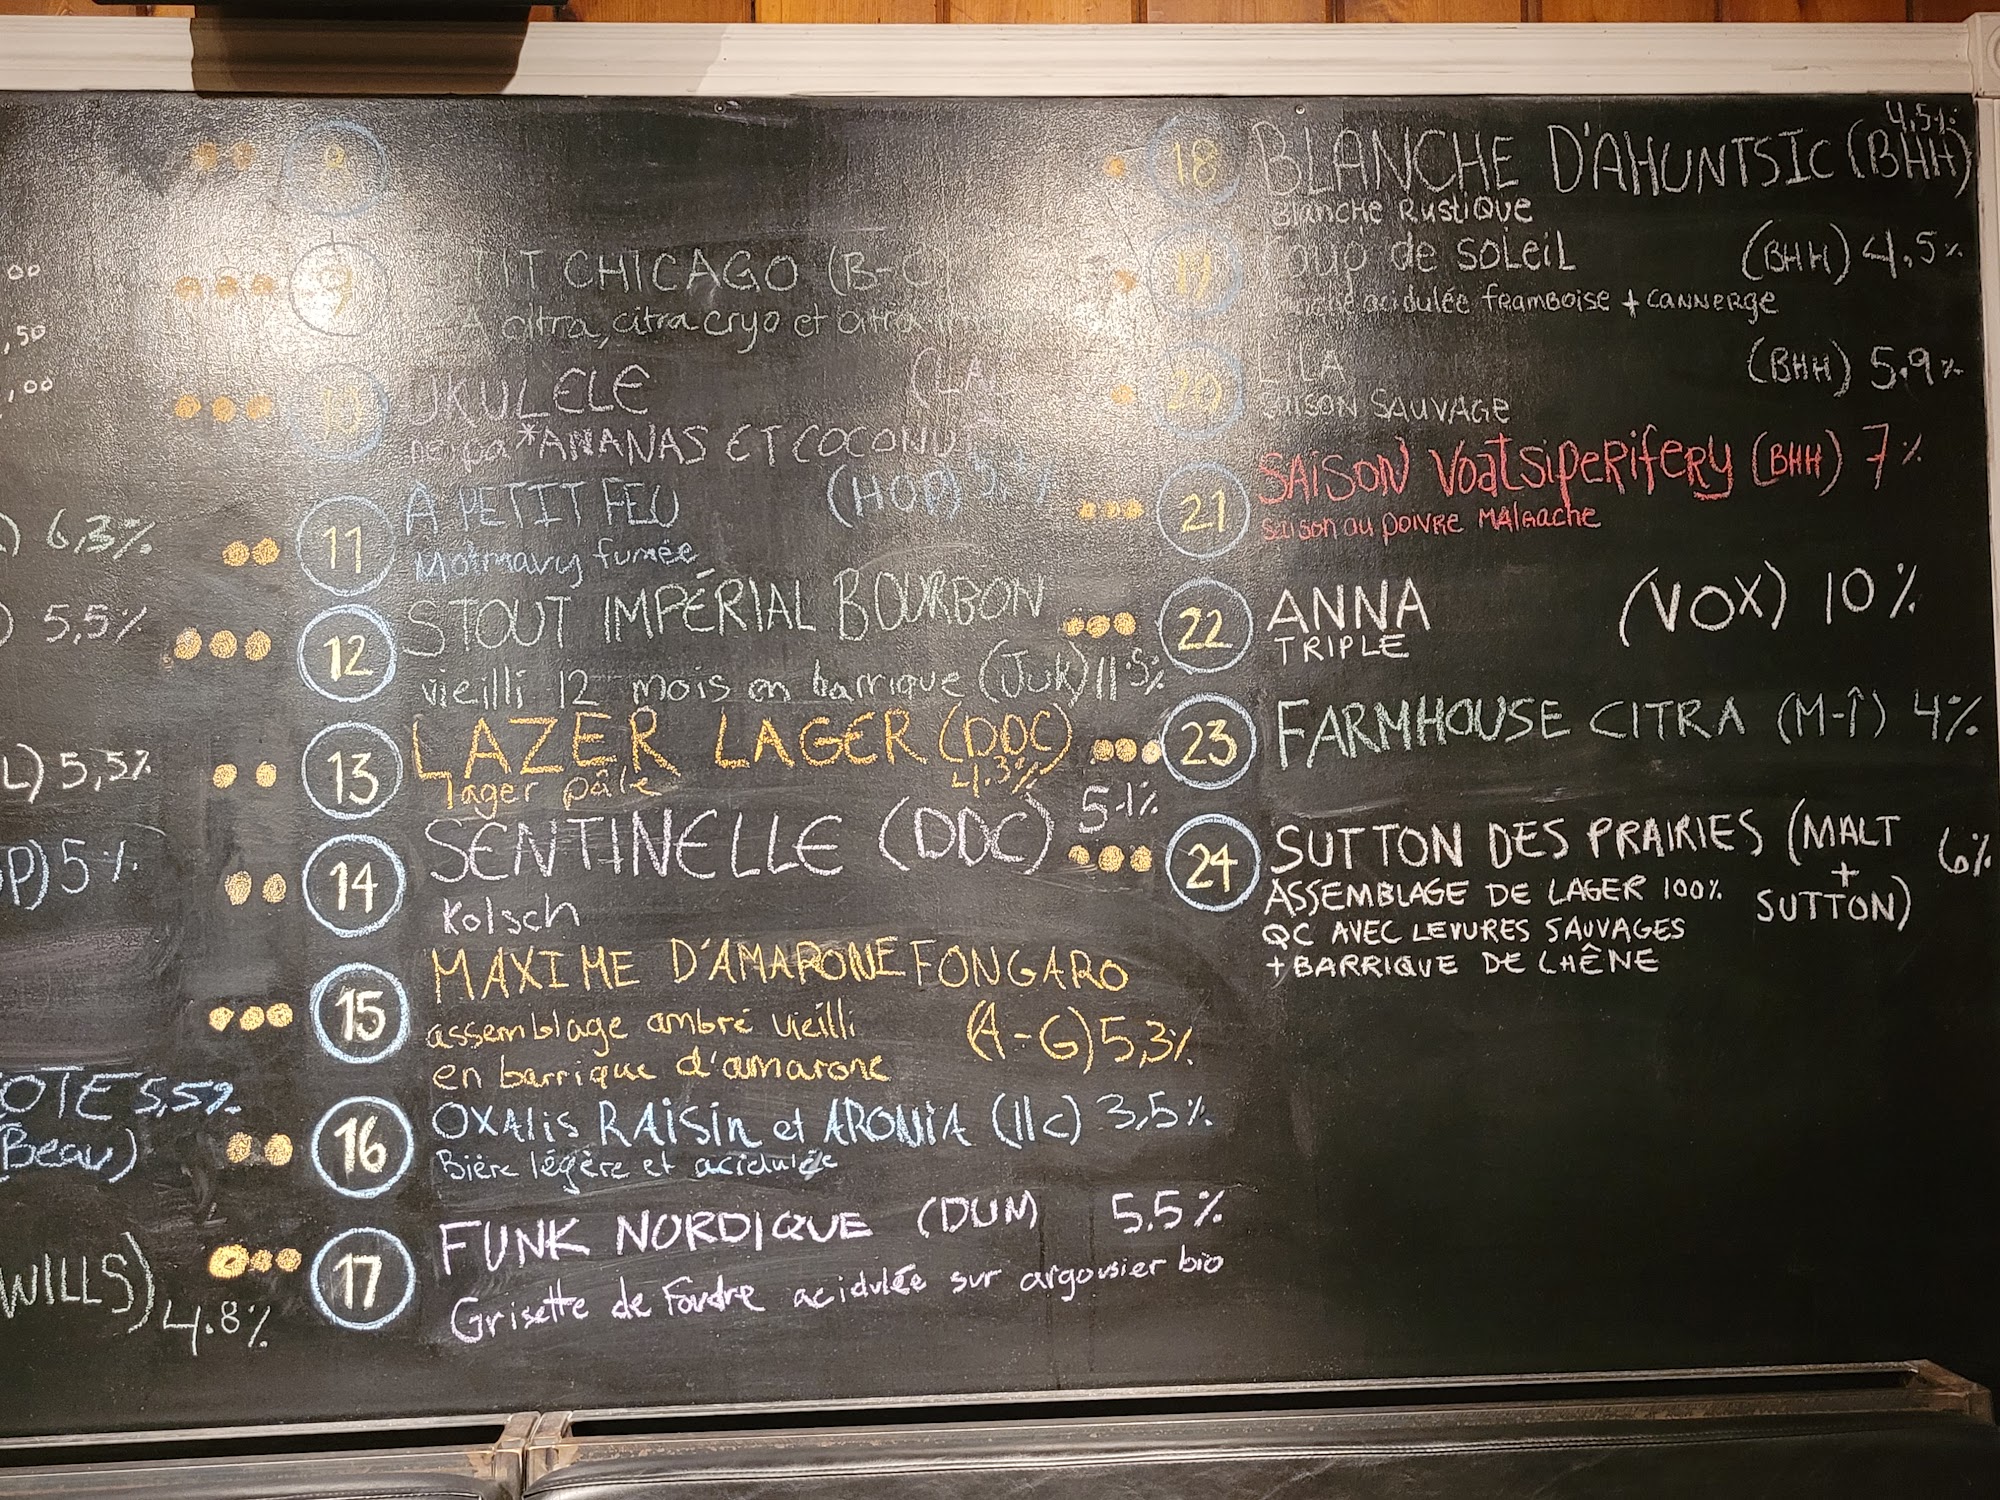 ,00
,50
,00
) 6,3%
) 5,5%
L) 5,5%
P) 5%
OTE 5,5%
(Beau)
WILLS)
4.8%
8
9
IT CHICAGO (B-C
citra, citra cryo et citra
10
UKULELE (LA
nepa *ANANAS ET COCONU
11
À PETIT FEU (HOP) 5,5%
fumée
12
STOUT IMPÉRIAL BOURBON
vieilli 12 mois en barrique (JUK) 11.5%
13
LAZER LAGER (DDC)
lager pâle 4.3%
14
SENTINELLE (DDC) 5.1%
Kolsch
15
MAXIME D'AMARONE FONGARO
assemblage ambré vieilli (A-G) 5,3%
en barrique d'amarone
16
OXALIS RAISIN et ARONIA (11c) 3,5%
Bière légère et acidulée
17
FUNK NORDIQUE (DUM) 5.5%
Grisette de Foudre acidulée sur argousier bio
18
4,5%
BLANCHE D'AHUNTSIC (BHH)
Blanche Rustique
19
Coup de SOLEiL (BHH) 4,5%
acidulée framboise + cannerge
20
LILA (BHH) 5.9%
SAISON SAUVAGE
21
SAISON VoatsiperiFery (BHH) 7%
Saison au poivre Malgache
22
ANNA (VOX) 10%
TRIPLE
23
FARMHOUSE CITRA (M-Î) 4%
24
SUTTON DES PRAIRIES (MALT + SUTTON) 6%
ASSEMBLAGE DE LAGER 100%
QC AVEC LEVURES SAUVAGES
+ BARRIQUE DE CHÊNE